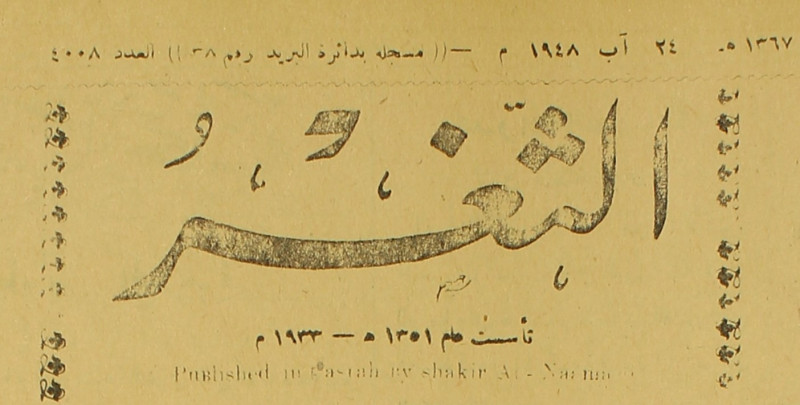 ١٣٦٧ ه‍. ٢٤ آب ١٩٤٨ م —((مسجله بدائرة البريد رقم ٣٨)) العدد ٤٠٠٨
الثغر
تأسست عام ١٣٥١ ه — ١٩٣٣ م
Published in Basrah by shakir Al -